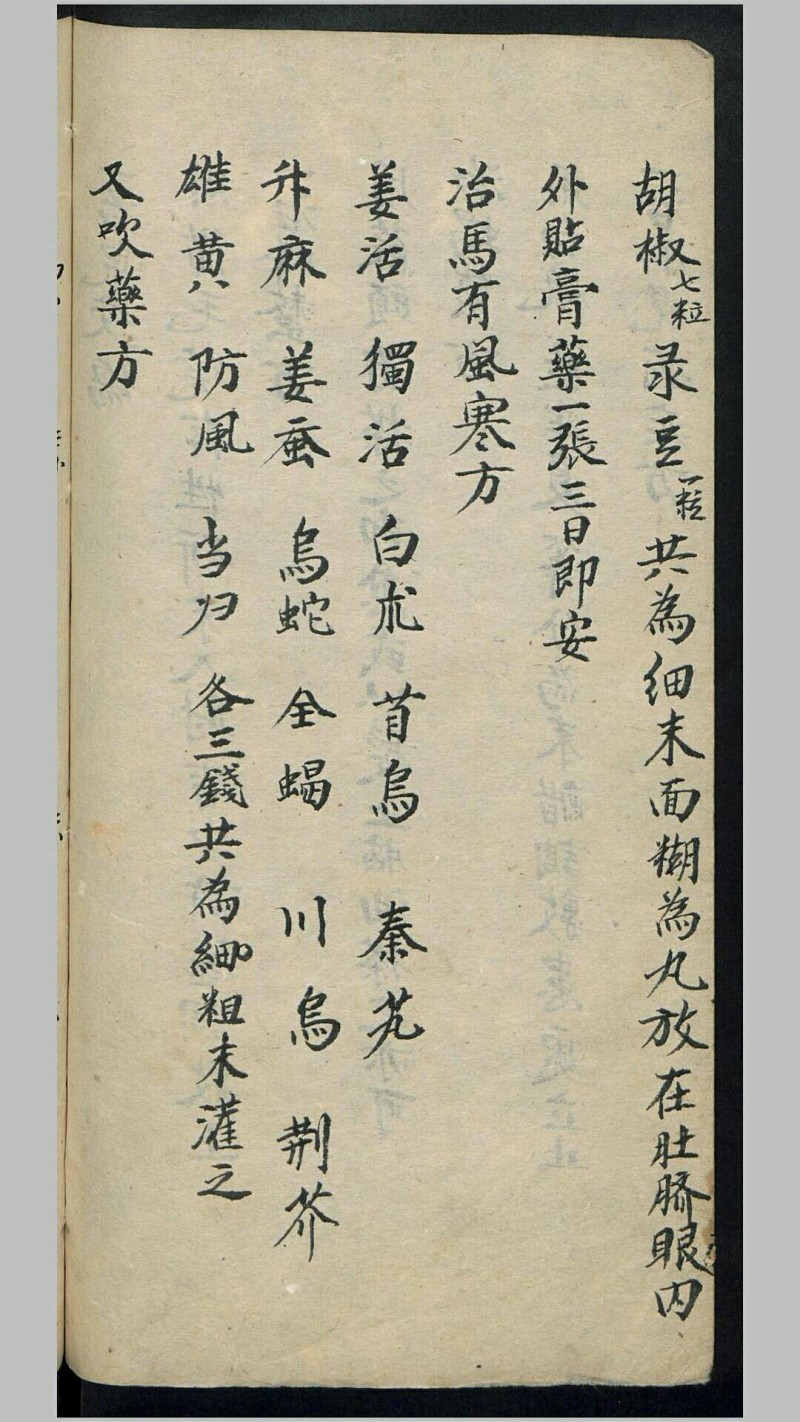 胡椒七粒录豆一粒共為细末面糊為丸放在肚臍眼内
外貼膏藥一張三日即安
治馬有風寒方
姜活 獨活 白朮 首烏 秦艽
升麻 姜蚕 烏蛇 全蝎 川烏 荆芥
雄黄 防風 当归 各三錢共為細粗末灌之
又吹藥方